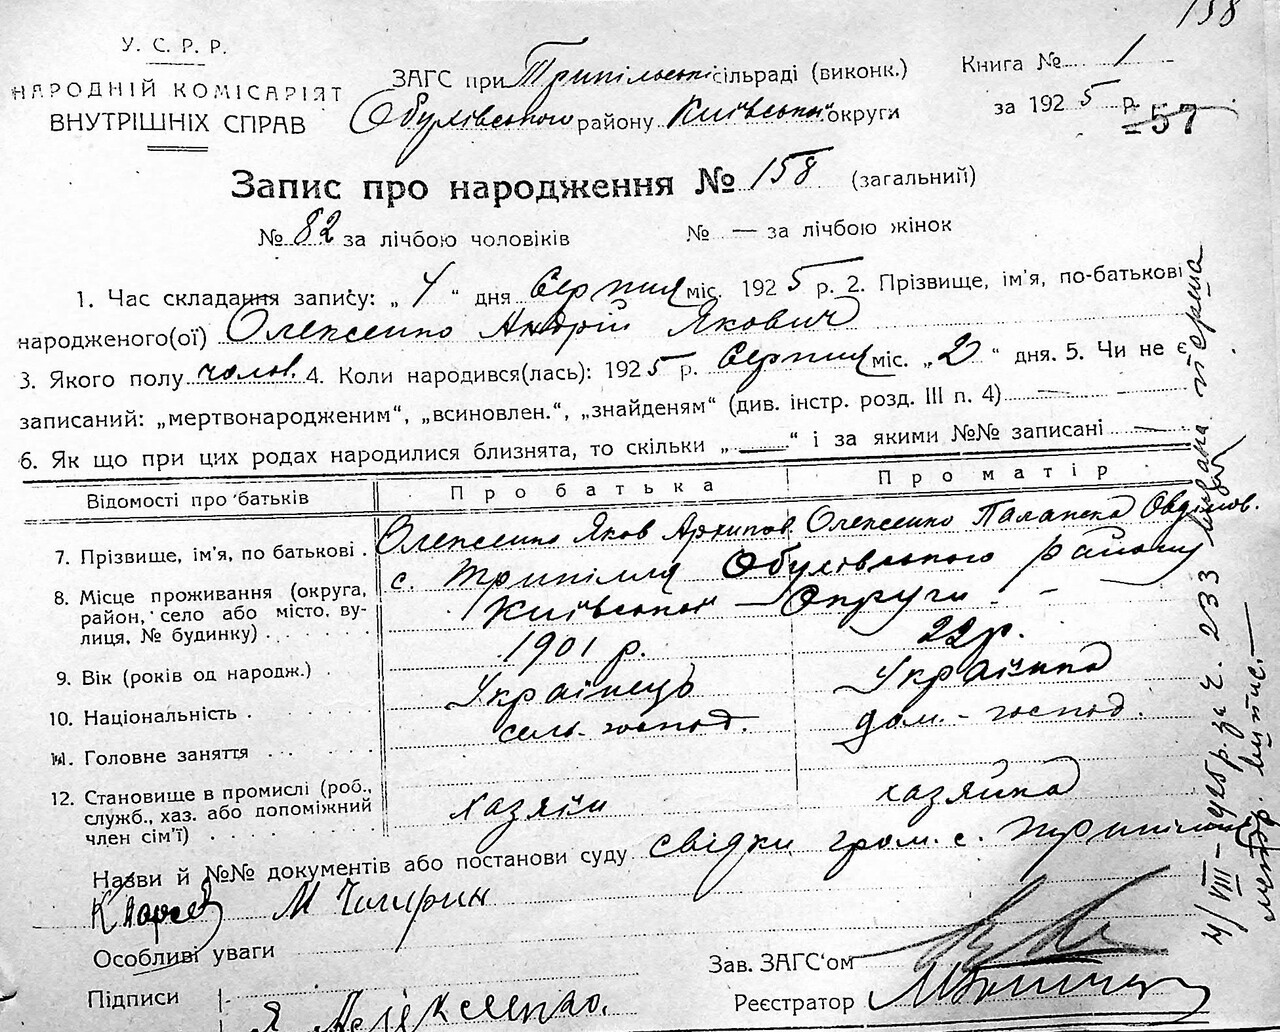 158
У. С. Р. Р.
НАРОДНІЙ КОМІСАРІЯТ
ВНУТРІШНІХ СПРАВ
ЗАГС при Трипільські сільраді (виконк.)
Обухівського району Київської округи
Книга № 1
за 1925 р.
57
Запис про народження № 158 (загальний)
№ 82 за лічбою чоловіків № — за лічбою жінок
1. Час складання запису: „4“ дня Серпня міс. 1925 р. 2. Прізвище, ім'я, по-батькові
народженого(ої) Олексенко Андрій Якович
3. Якого полу чолов. 4. Коли народився(лась): 1925 р. Серпня міс. „2“ дня. 5. Чи не є
записаний: „мертвонародженим“, „всиновлен.“, „знайденям“ (див. інстр. розд. III п. 4) —
6. Як що при цих родах народилися близнята, то скільки „—“ і за якими №№ записані —
Відомості про батьків Про батька Про матір
7. Прізвище, ім'я, по батькові . Олексенко Яков Архипов. Олексенко Палажка Овдимов.
8. Місце проживання (округа, район, село або місто, вулиця, № будинку) с. Трипілля Обухівського району
Київської — Округи -
9. Вік (років од народж.) . 1901 р. 22 р.
10. Національність . Українець Українка
11. Головне заняття сель-господ. дом.-господ.
12. Становище в промислі (роб., служб., хаз. або допоміжний член сім'ї) хазяїн хазяйка
Назви й №№ документів або постанови суду свідки гром. с. Трипілля
М
Особливі уваги
Зав. ЗАГС'ом
Підписи Я Алексенко.
Реєстратор
4/VIII – 925 р. за ч. 233 видана
метр. випис.